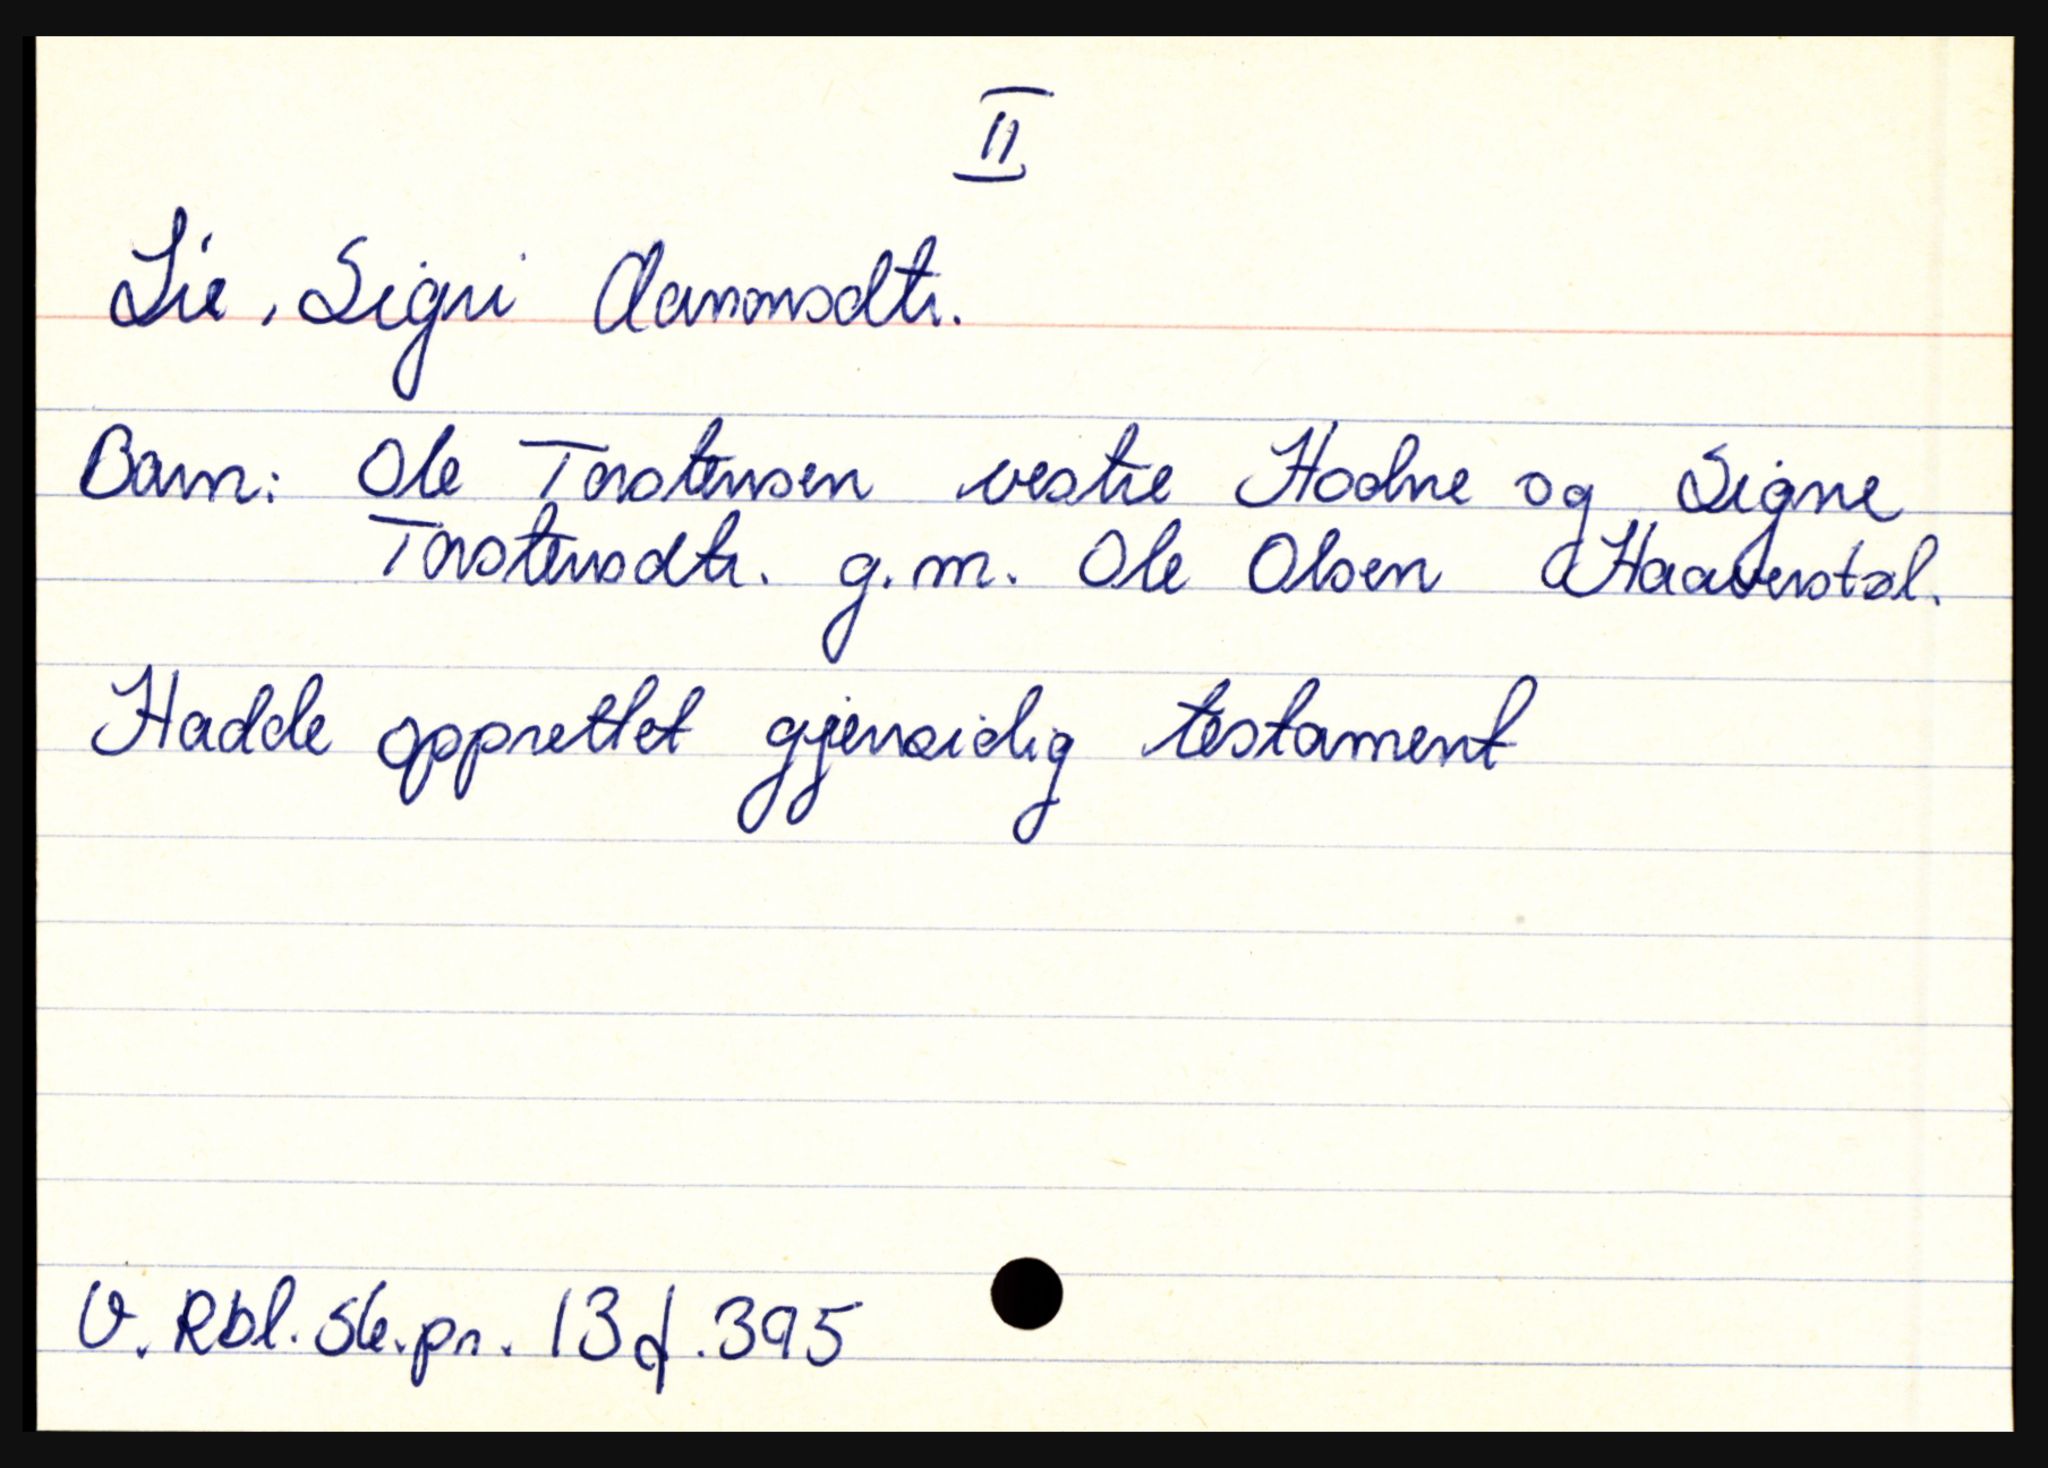 II
Lie, Signi Aanonsdtr.
Barn: Ole Torstensen vestre Hodne og Signe
Torstensdtr. g.m. Ole Olsen Haaverstøl.
Hadde opprettet gjensidig testament
V. Rbl. Sk.pr. 13 f. 395